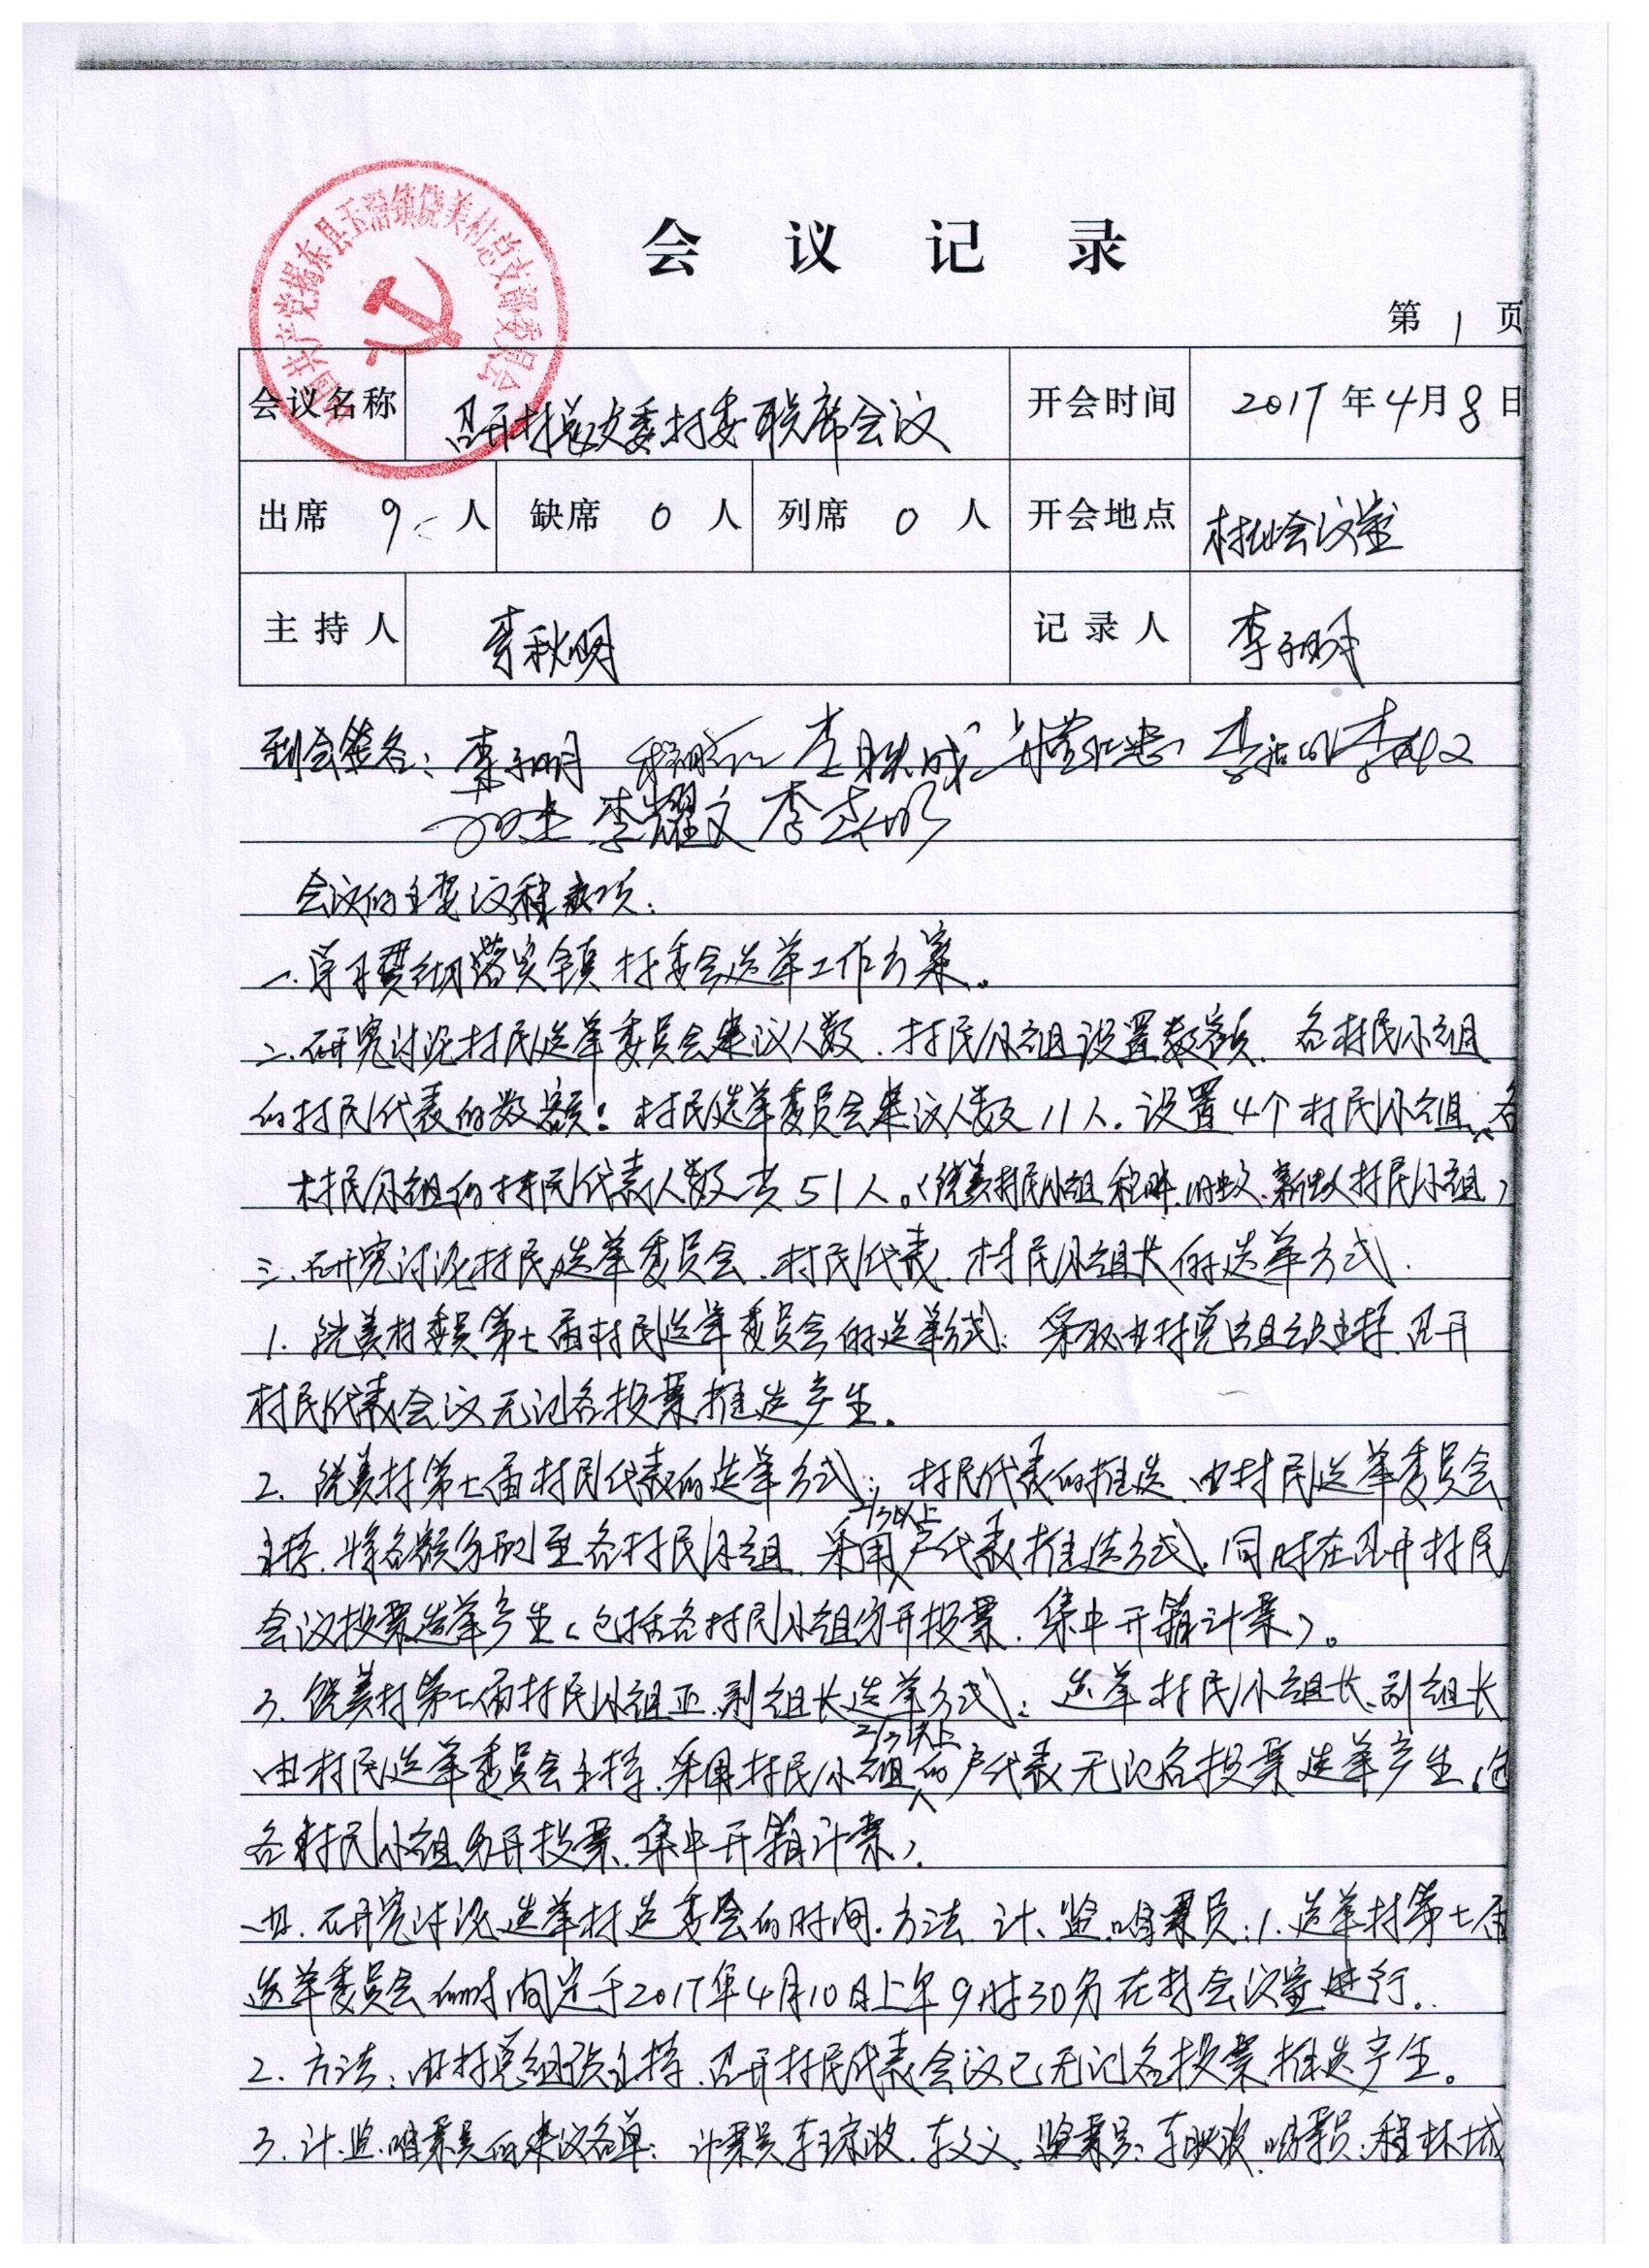 中国共产党揭东县玉滘镇饶美村总支部委员会
会议记录
第 1 页
会议名称 召开村总支委村委联席会议 开会时间 2017年4月8日
出席 9 人 缺席 0 人 列席 0 人 开会地点 村址会议室
主持人 李秋明 记录人 李
到会签名：李 李联成
李耀文 李
会议的主要议程事项：
一.学习贯彻落实全镇村委会选举工作方案。
二.研究讨论村民选举委员会建议人数.村民小组设置数额.各村民小组
的村民代表的数额：村民选举委员会建议人数11人.设置4个村民小组、各
村民小组的村民代表人数共51人。（饶美村民小组 村民小组）
三.研究讨论村民选举委员会.村民代表.村民小组长的选举方式.
1. 饶美村委员第七届村民选举委员会的选举方式：采取由村党总组织主持.召开
村民代表会议无记名投票推选产生。
2. 饶美村第七届村民代表的选举方式：村民代表的推选、由村民选举委员会
主持.将名额分配至各村民小组.采用2/3以上户代表推选方式.同时在召开村民
会议投票选举产生（包括各村民小组分开投票.集中开箱计票）。
3. 饶美村第七届村民小组正.副组长选举方式：选举村民小组长、副组长
由村民选举委员会主持.采用村民小组2/3以上的户代表无记名投票选举产生（包
各村民小组分开投票.集中开箱计票）.
四.研究讨论选举村选委会的时间.方法 计、监.唱票员：1.选举村第七届
选举委员会的时间定于2017年4月10日上午9时30分在村会议室进行.
2. 方法：由村党组织主持.召开村民代表会议已无记名投票推选产生。
3. 计.监.唱票员的建议名单：计票员 监票员：唱票员：程林城